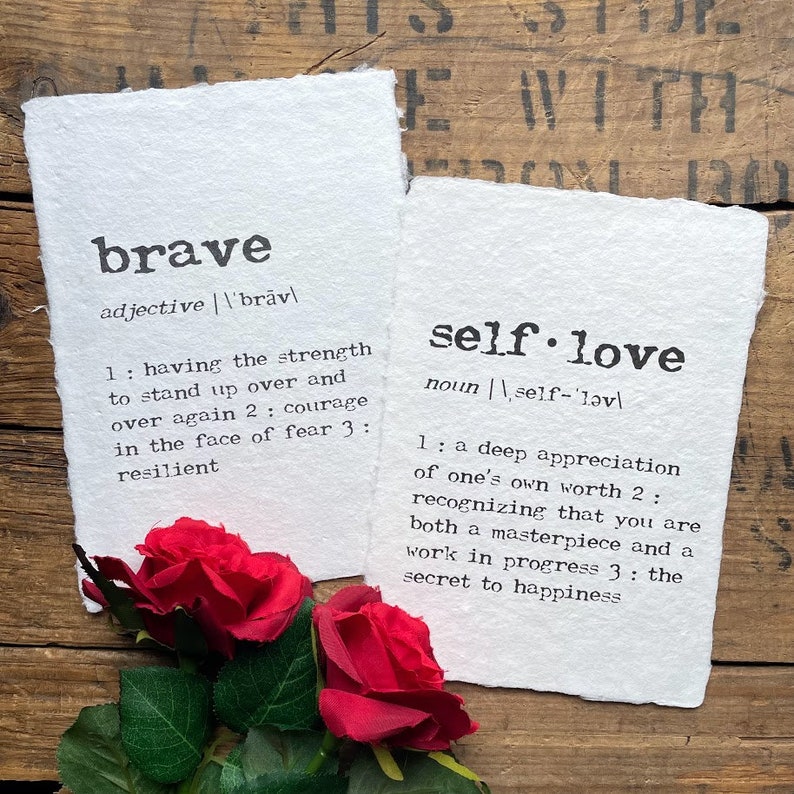 WITH
brave
adjective |\ˈbrāv\
1 : having the strength
to stand up over and
over again 2 : courage
in the face of fear 3 :
resilient
self·love
noun |\ˌself-ˈləv\
1 : a deep appreciation
of one's own worth 2 :
recognizing that you are
both a masterpiece and a
work in progress 3 : the
secret to happiness